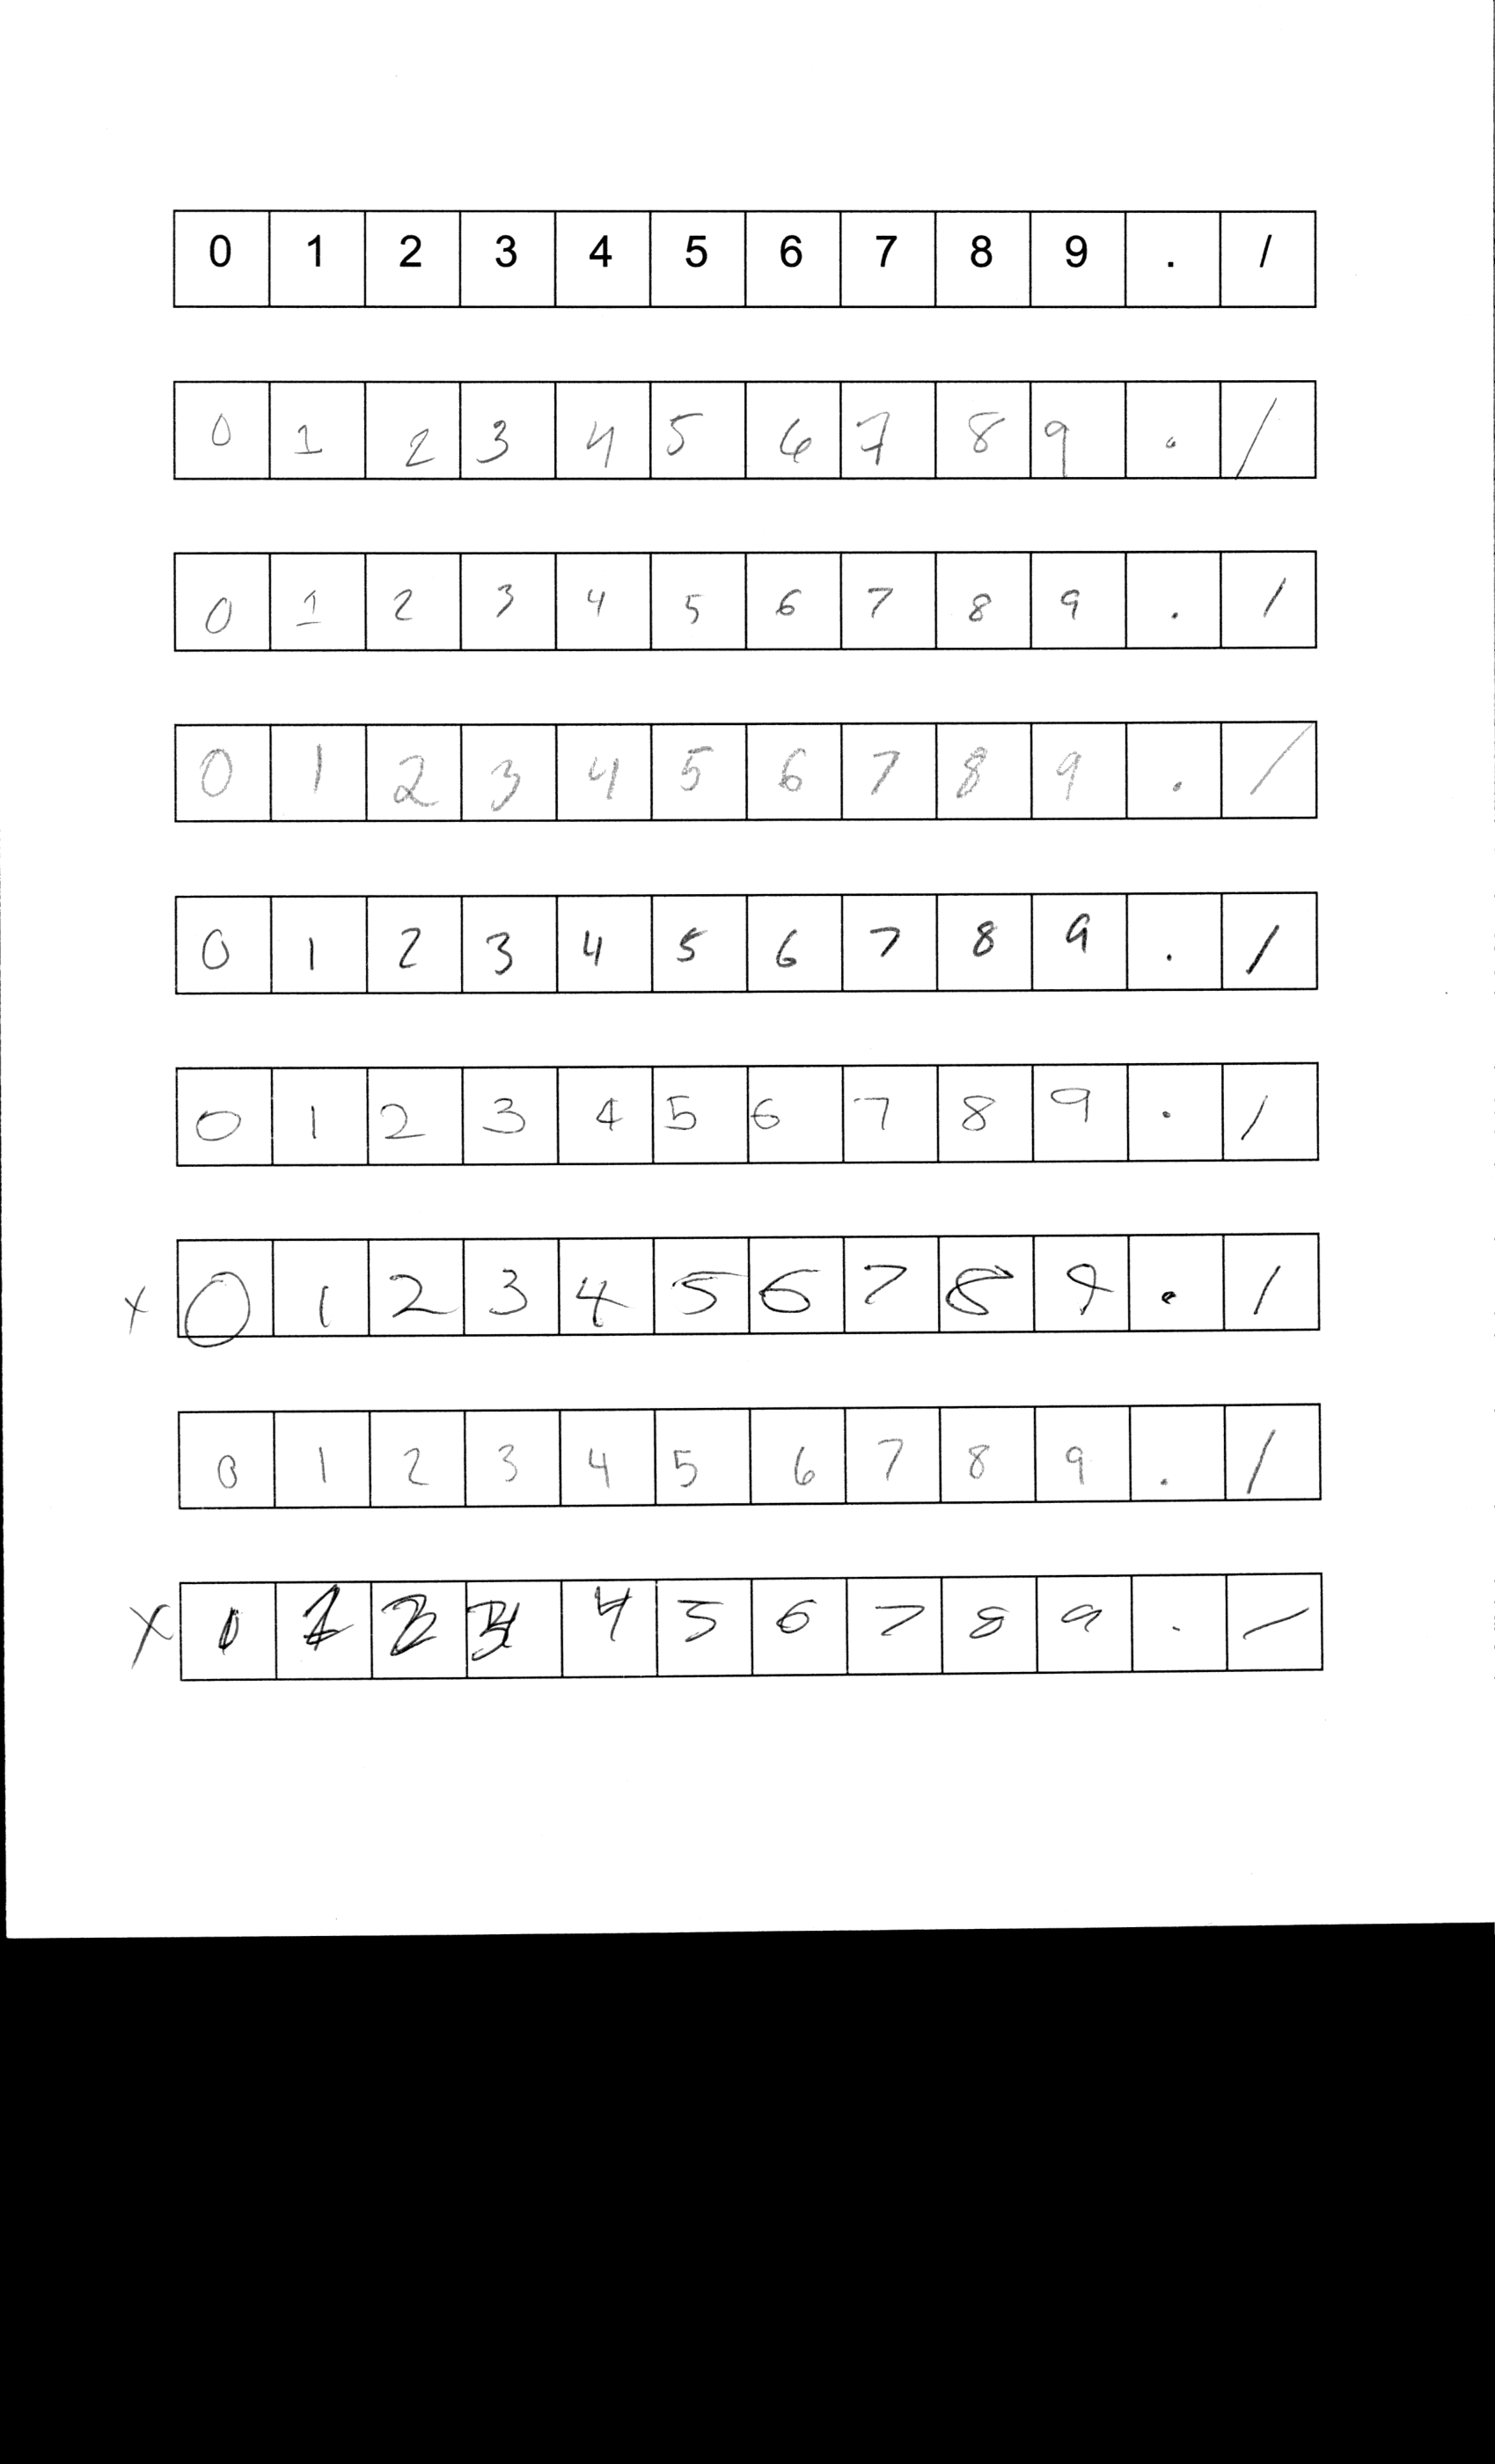 0 1 2 3 4 5 6 7 8 9 . /
0 1 2 3 4 5 6 7 8 9 . /
0 1 2 3 4 5 6 7 8 9 . /
0 1 2 3 4 5 6 7 8 9 . /
0 1 2 3 4 5 6 7 8 9 . /
0 1 2 3 4 5 6 7 8 9 . /
x 0 1 2 3 4 5 6 7 8 9 . /
0 1 2 3 4 5 6 7 8 9 . /
X 4 5 6 7 8 9 . /